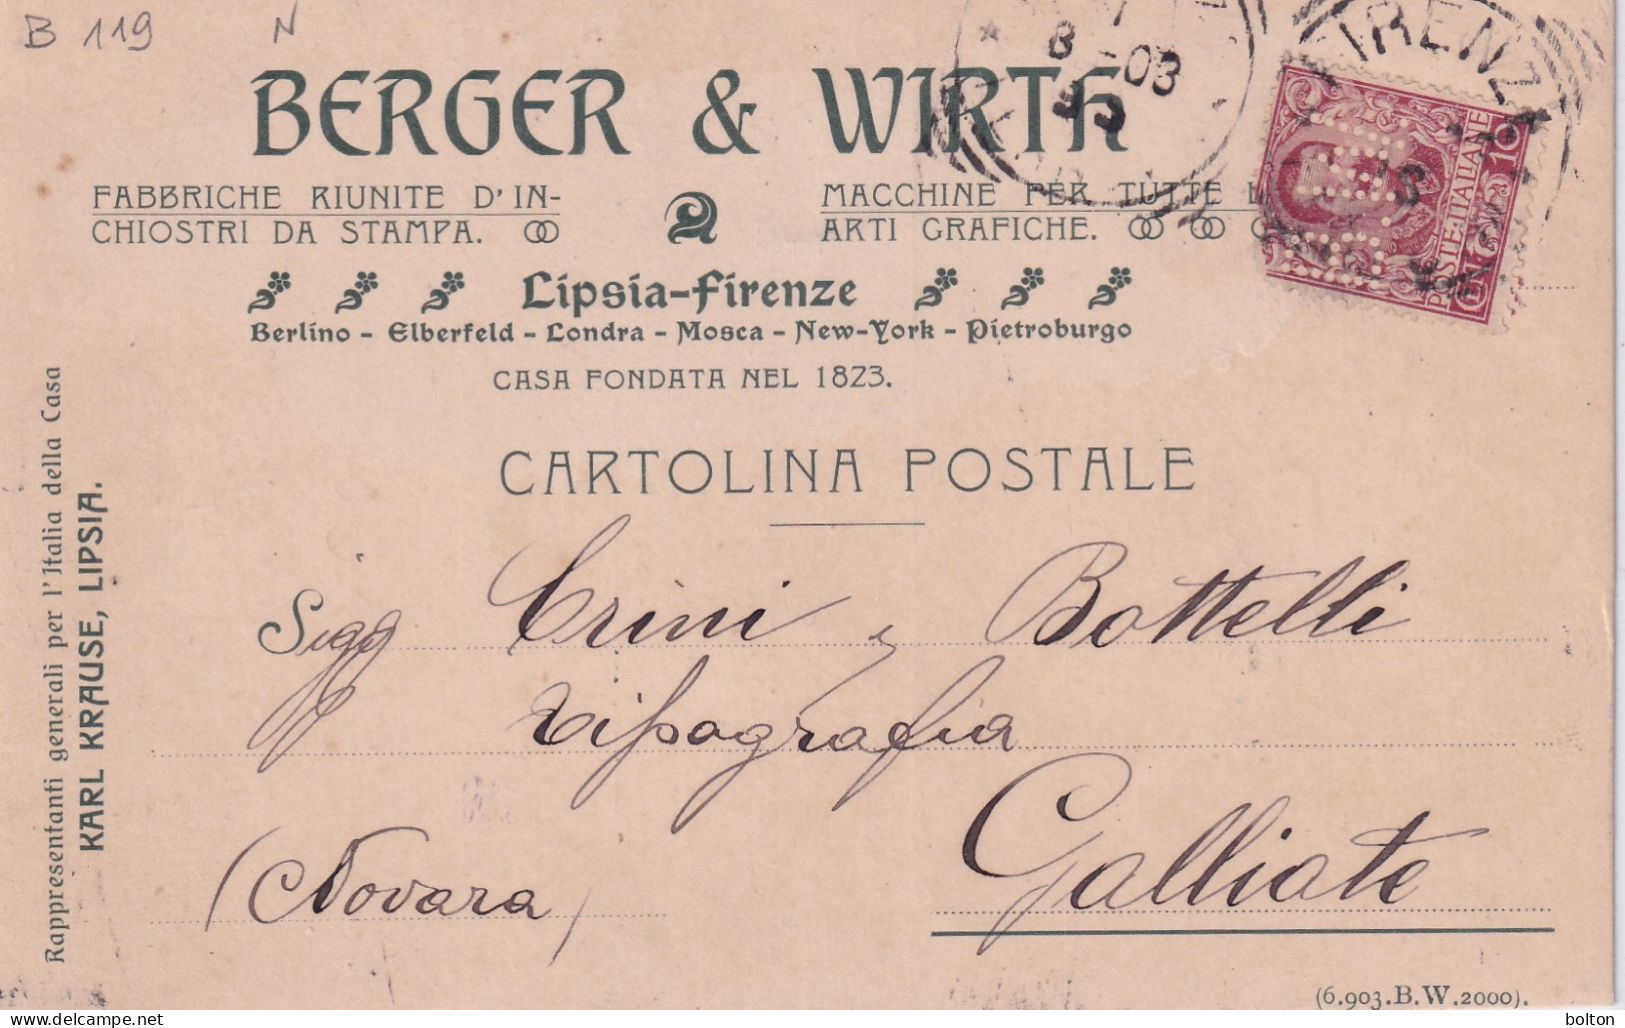 B 119 N
BERGER & WIRTH
FABBRICHE RIUNITE D'IN-
CHIOSTRI DA STAMPA.
MACCHINE PER TUTTE L
ARTI GRAFICHE.
Lipsia-Firenze
Berlino - Elberfeld - Londra - Mosca - New-York - Pietroburgo
CASA FONDATA NEL 1823.
CARTOLINA POSTALE
Sigg Crini e Bottelli
Tipografia
Galliate
(Novara)
Rappresentanti generali per l'Italia della Casa
KARL KRAUSE, LIPSIA.
(6.903.B.W.2000).
8 -03
FIRENZE
POSTE ITALIANE
10
delcampe.net
bolton